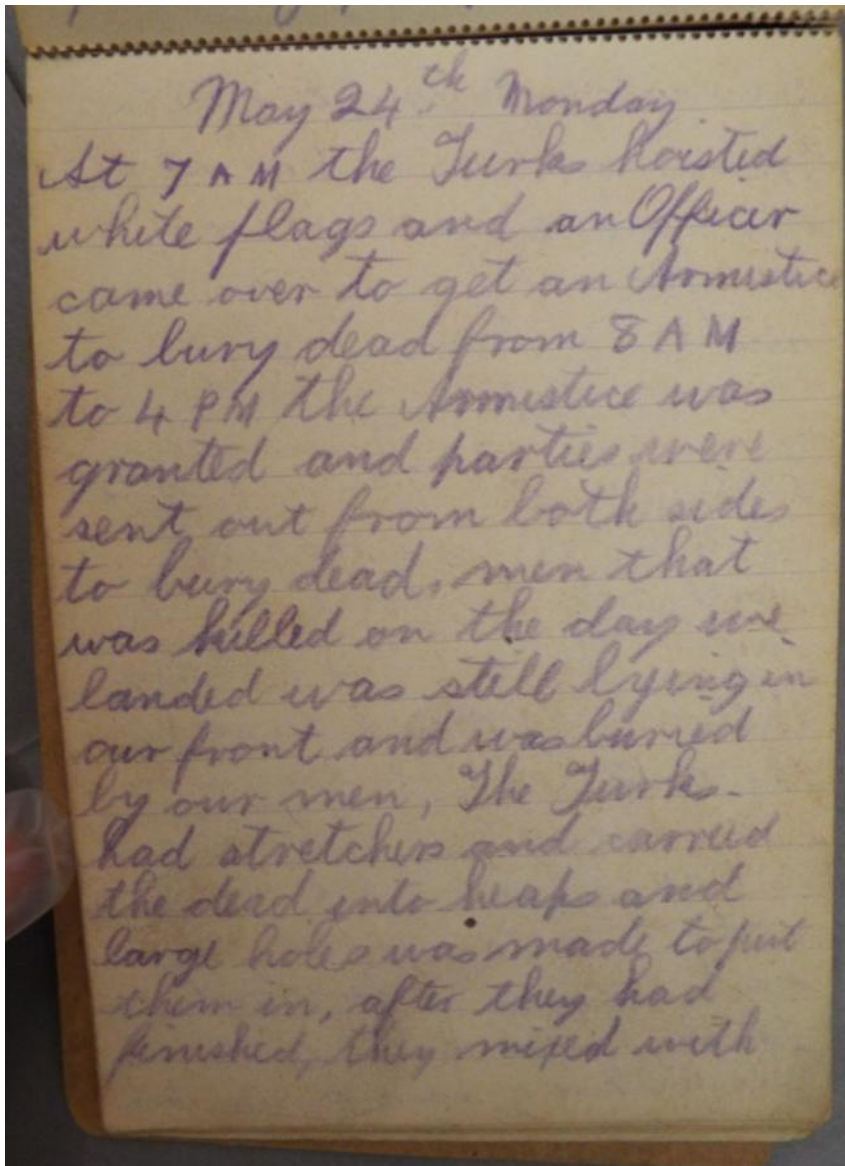 May 24th Monday
At 7 AM the Turks hoisted
white flags and an Officer
came over to get an Armistice
to bury dead from 8 AM
to 4 PM the Armistice was
granted and parties were
sent out from both sides
to bury dead, men that
was killed on the day we
landed was still lying in
our front and was burried
by our men, The Turks
had stretchers and carried
the dead into heaps and
large holes was made to put
them in, after they had
finished, they mixed with